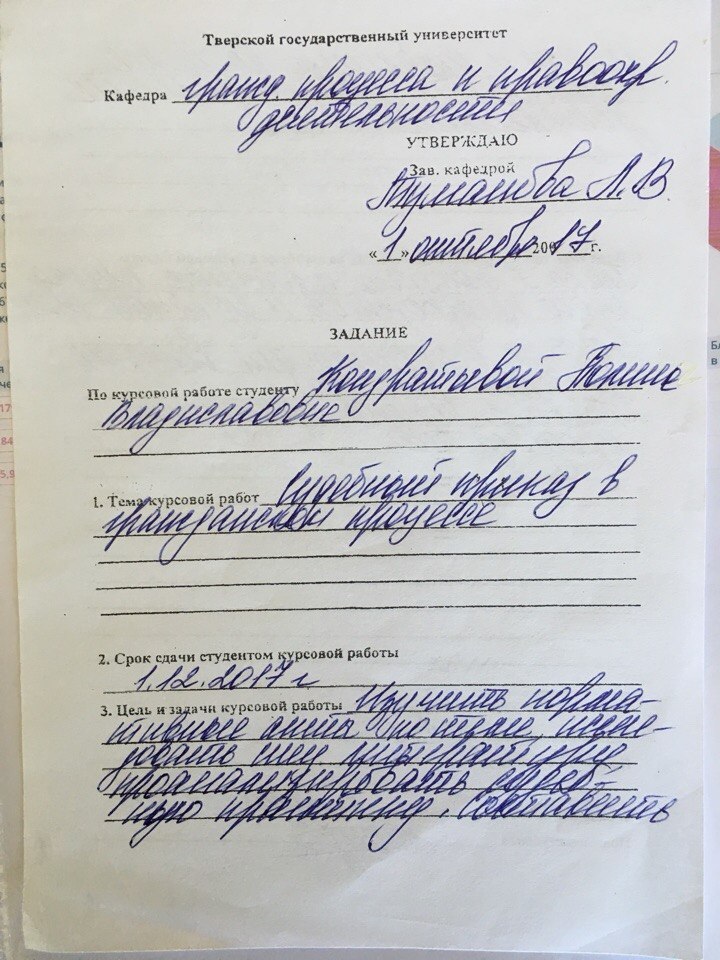 Тверской государственный университет
Кафедра гражд. процесса и правоохр.
деятельности
УТВЕРЖДАЮ
Зав. кафедрой
Туманова Л.В.
«1» октября 2017 г.
ЗАДАНИЕ
По курсовой работе студенту Кондратьевой Полине
Владиславовне
1. Тема курсовой работ Судебный приказ в
гражданском процессе
2. Срок сдачи студентом курсовой работы
1.12.2017 г
3. Цель и задачи курсовой работы Изучить норма-
тивные акты по теме, иссле-
довать спец литературу,
проанализировать судеб-
ную практику, составить